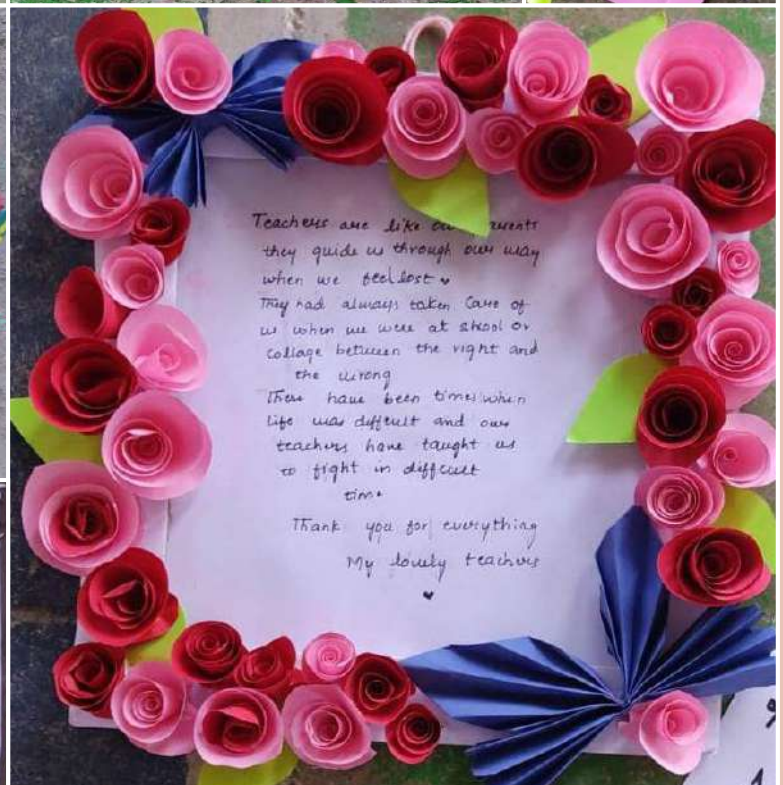 Teachers are like our parents
they guide us through our way
when we feel lost
They had always taken care of
us when we were at skool or
collage between the right and
the wrong
There have been times when
life was diffcult and our
teachers have taught us
to fight in diffcult
time
Thank you for everything
My lovely teachers